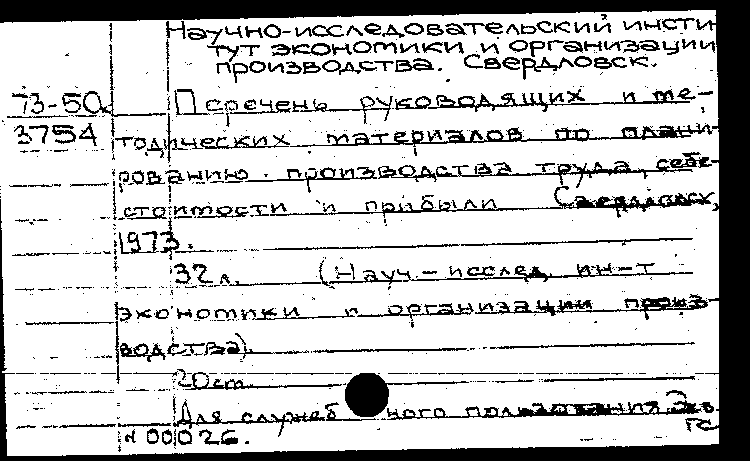 Научно-исследовательский инсти
тут экономики и организации
производства. Свердловск.
73-50
3754
Перечень руководящих и ме-
тодических материалов по плани-
рованию производства труда, себе-
стоимости и прибыли Свердловск,
1973.
32 л. (Науч.-исслед. ин-т
экономики и организации произ-
водства).
20 ст.
Для служебного пользования. Экз.
N 00026.
ГС